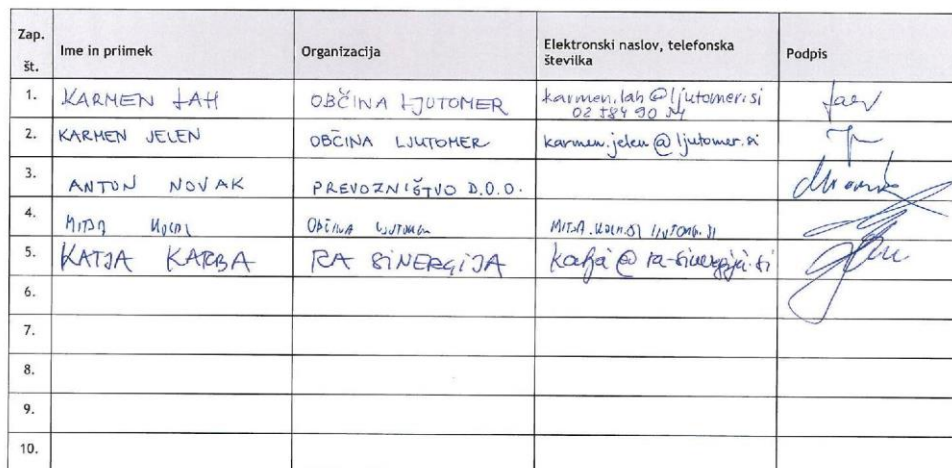 Zap. št. Ime in priimek Organizacija Elektronski naslov, telefonska številka Podpis
1. KARMEN LAH OBČINA LJUTOMER karmen.lah@ljutomer.si
02 584 90
2. KARMEN JELEN OBČINA LJUTOMER karmen.jelen@ljutomer.si
3. ANTON NOVAK PREVOZNIŠTVO D.O.O.
4. MITJA OBČINA LJUTOMER
5. KATJA KARBA RA SINERGIJA katja@ra-sinergija.si
6.
7.
8.
9.
10.